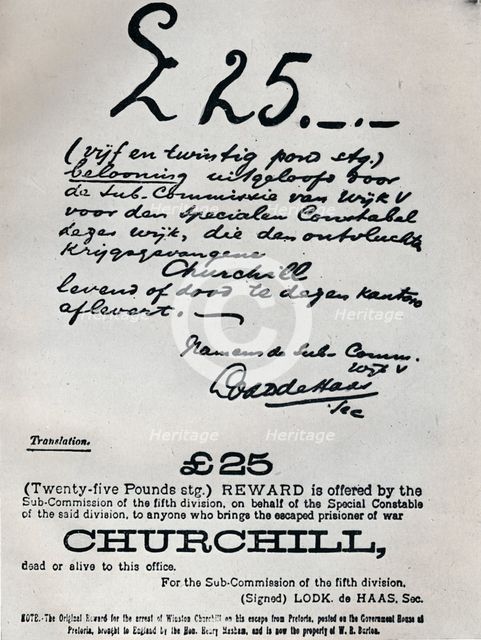 £ 25.-.-
(vijf en twintig pond stg.)
belooning uitgeloofd door
de Sub-Commissie van Wijk V
voor den Specialen Constabel
dezes wijk, die den ontvluchte
Krijgsgevangene
Churchill
levend of dood te dezen kantore
aflevert. —
Namens de Sub-Comm.
Wijk V
Lodk de Haas
Sec
Translation.
£25
(Twenty-five Pounds stg.) REWARD is offered by the
Sub-Commission of the fifth division, on behalf of the Special Constable
of the said division, to anyone who brings the escaped prisioner of war
CHURCHILL,
dead or alive to this office.
For the Sub-Commission of the fifth division,
(Signed) LODK. de HAAS, Sec.
NOTE.-The Original Reward for the arrest of Winston Churchill on his escape from Pretoria, posted on the Government House at
Pretoria, brought to England by the Hon. Henry Masham, and is now the property of W. R. Burton.
Heritage
Heritage
Heritage
Heritage
Heritage
Heritage